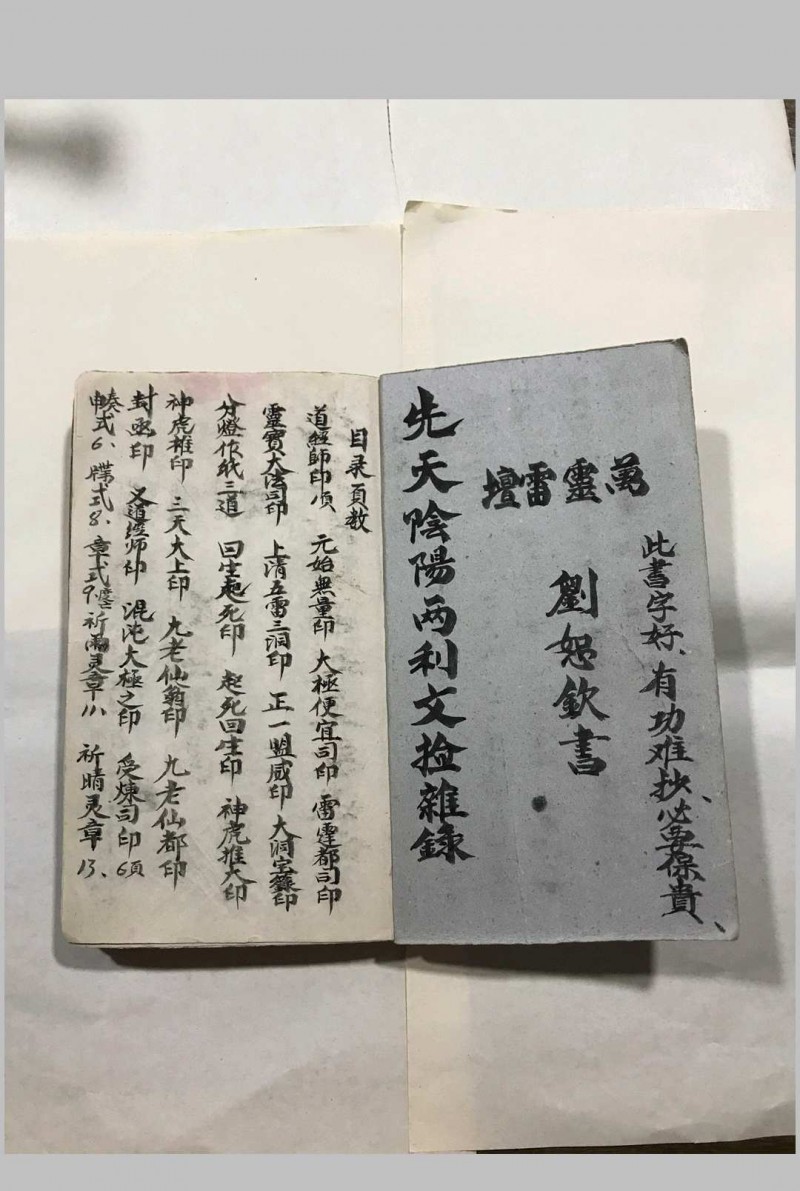 此書字好、有功难抄、必要保貴、
萬靈雷壇
劉恕欽書
先天陰陽两利文捡雜錄
目录頁数
道經師印項 元始無量印 大極便宜司印 雷霆都司印
靈寶大法司印 上清五雷三洞印 正一盟威印 大洞宝籙印
分燈作紙三道 回生起死印 起死回生印 神虎推大印
神虎推印 三天大上印 九老仙翁印 九老仙都印
封函印 又道經师印 混沌大極之印 受煉司印6頁
申奏式6、牒式8、章式9 祈雨灵章11、祈晴灵章13、